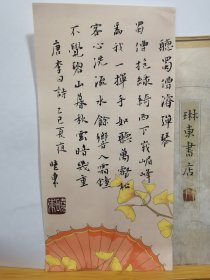 聽蜀僧濬彈琴
蜀僧抱綠綺西下峨嵋峰
爲我一揮手如聽萬壑松
客心洗流水餘響入霜鐘
不覺碧山暮秋雲暗幾重
唐李白詩乙巳夏夜東
琳東書店